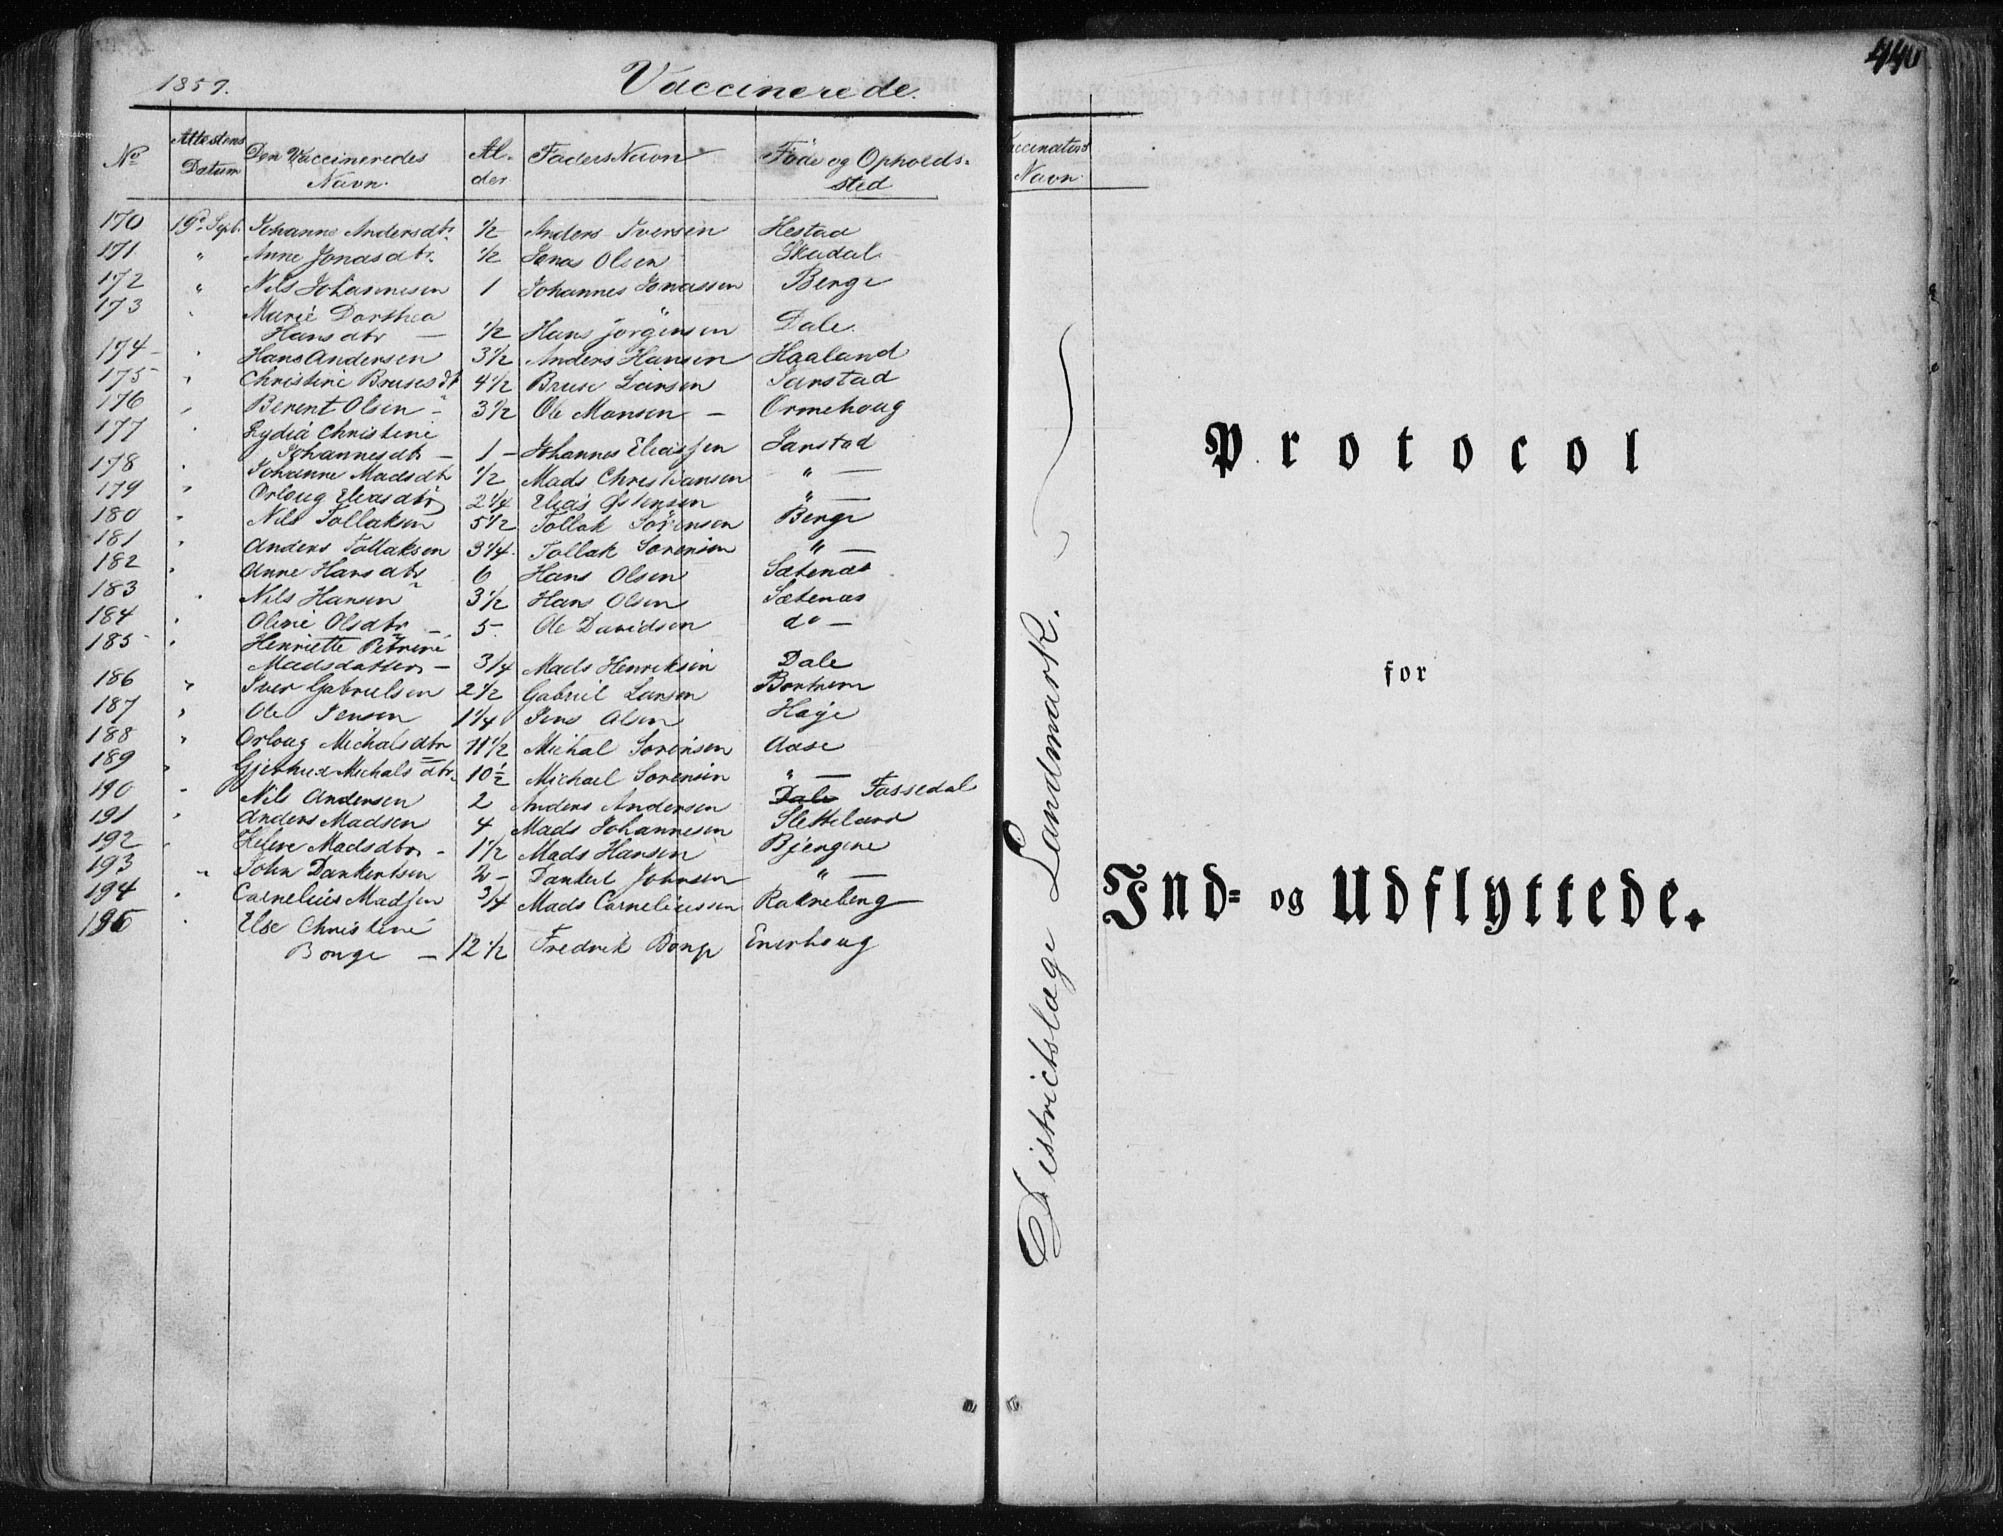 1857. Vaccinerede.
No Attestens Datum Den Vaccineredes Navn. Al-der Faders Navn Føde og Opholds-sted
170 19d Sept. Johanne Andersdtr. 1/2 Anders Iversen Hestad
171 " Anne Jonasdtr. 1/2 Jonas Olsen Skadal
172 " Nils Johannesen 1 Johannes Jonassen Berge
173 " Marie Dorthea
Hansdtr — 1/2 Hans Jörgensen Dale
174 " Hans Andersen 3 1/2 Anders Hansen Haaland
175 " Christine Brusesdt 4 1/2 Bruse Larsen Janstad
176 " Berent Olsen - 3 1/2 Ole Monsen - Ormehoug
177 " Lydia Christine
Johannesdtr — 1 - Johannes Eliassen Janstad
178 " Johanne Madsdtr 1/2 Mads Christiansen " —
179 " Orloug Eliasdtr 2 1/4 Elias Østensen " —
180 " Nils Tollaksen 5 1/2 Tollak Sörensen Berge
181 " Anders Tollaksen 3 1/4 Tollak Sörensen " —
182 " Anne Hansdtr 6 Hans Olsen Sætenæs
183 " Nils Hansen 3 1/2 Hans Olsen Sætenæs
184 " Oline Olsdtr — 5. Ole Davidsen do —
185 " Henriette Petrine
Madsdatter — 3/4 Mads Henriksen Dale
186 " Iver Gabrielsen 2 1/2 Gabriel Larsen
187 " Ole Jensen 1 1/4 Jens Olsen Hage
188 " Orloug Michalsdtr 11 1/2 Michal Sörensen Aase
189 " Gjertrud Michalsdtr. 10 1/2 Michael Sorensen " —
190 " Nils Andersen 2 Anders Andersen Dale Fossedal
191 " Anders Madsen 4 Mads Johannesen Sletteland
192 " Helene Madsdtr - 1 1/2 Mads Hansen
193 " John Dankertsen 2 - Dankert Johnsen " —
194 " Cornelius Madsen 3/4 Mads Corneliussen Rakneberg
195 " Else Christine
Bonge — 12 1/2 Fredrik Bonge Enerhoug
446
Vaccinateurs
Navn.
Districtslæge Landmark.
Protocol
for
Ind= og Udflyttede.